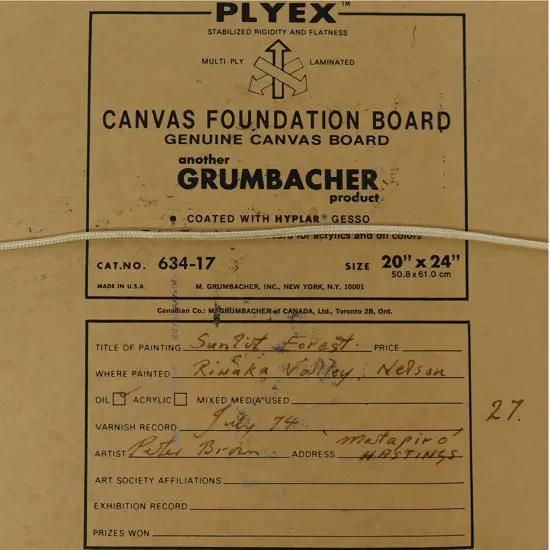 PLYEX™
STABILIZED RIGIDITY AND FLATNESS
MULTI-PLY LAMINATED
CANVAS FOUNDATION BOARD
GENUINE CANVAS BOARD
another
GRUMBACHER
product
• COATED WITH HYPLAR® GESSO
for acrylics and oil colors
CAT.NO. 634-17 SIZE 20" x 24"
50.8 x 61.0 cm
MADE IN U.S.A. M. GRUMBACHER, INC., NEW YORK, N.Y. 10001
Canadian Co.: M. GRUMBACHER of CANADA, Ltd., Toronto 2B, Ont.
TITLE OF PAINTING Sunlit Forest. PRICE
WHERE PAINTED Riwaka Valley, Nelson
OIL ACRYLIC MIXED MEDIA USED
27.
VARNISH RECORD July 74
ARTIST Peter Brown. ADDRESS Matapiro
HASTINGS
ART SOCIETY AFFILIATIONS
EXHIBITION RECORD
PRIZES WON